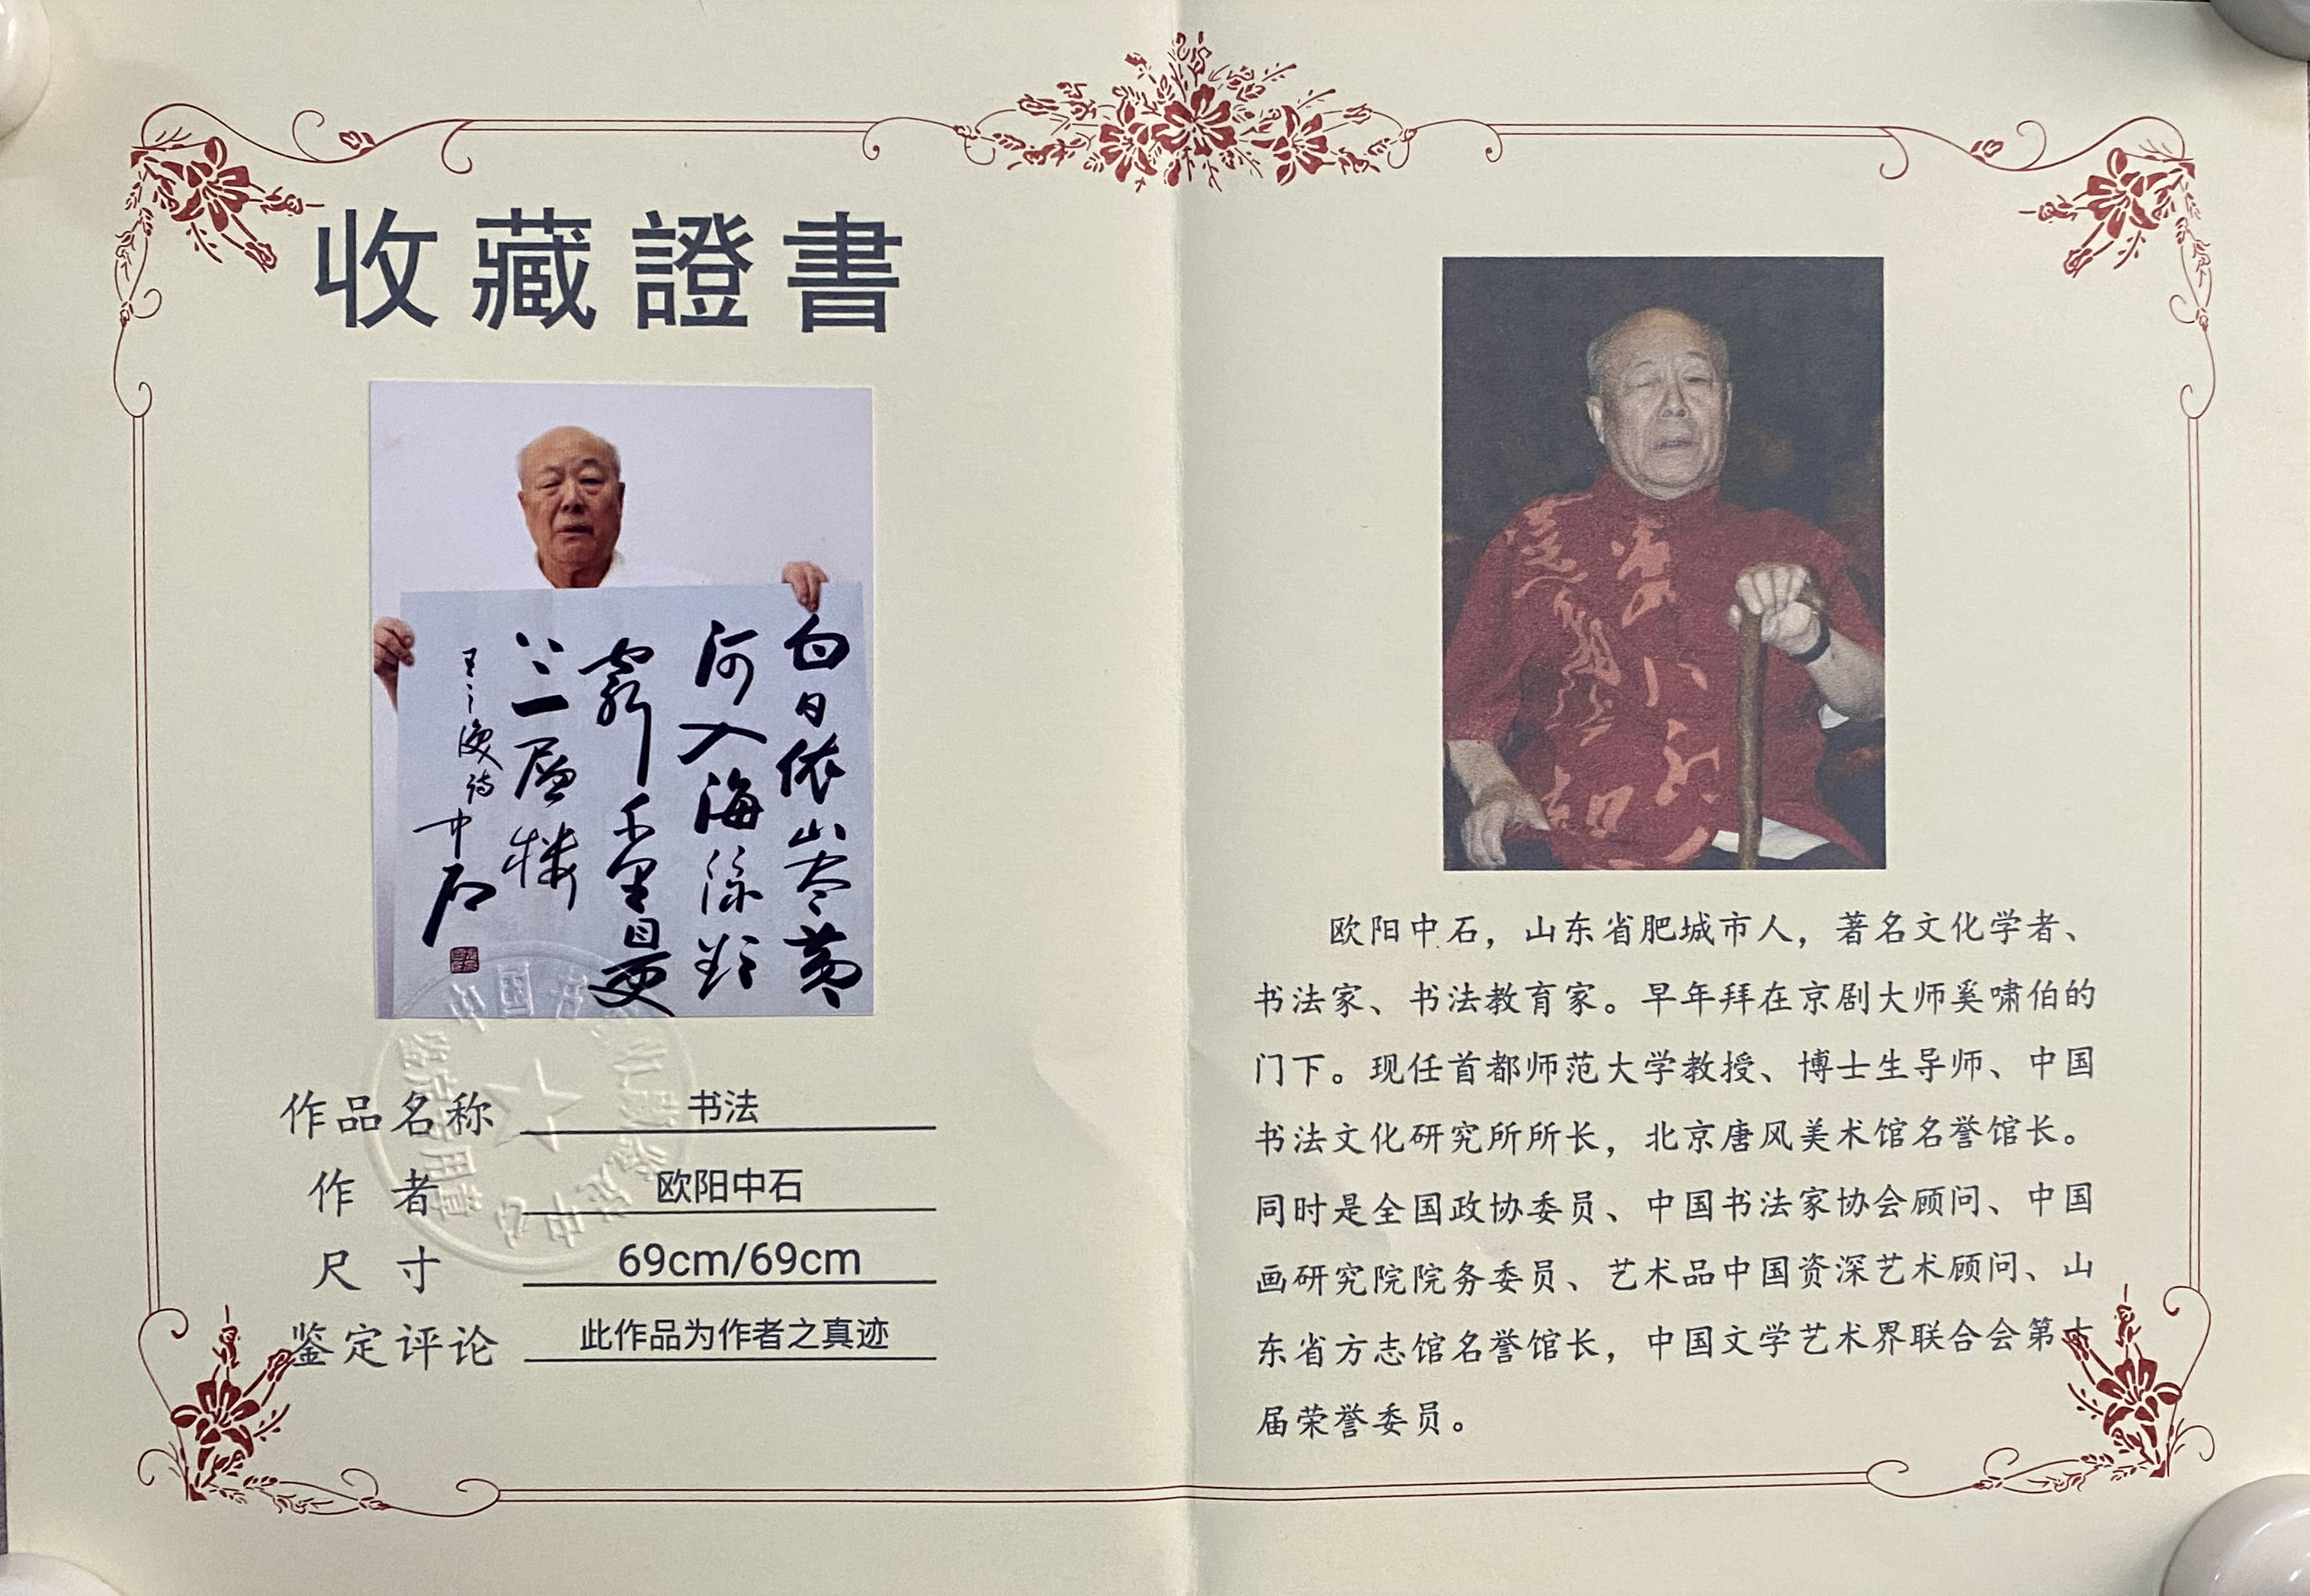 收藏證書
白日依山尽黄
河入海流欲
穷千里目更
上一层楼
王之涣诗 中石
作品名称 书法
作者 欧阳中石
尺寸 69cm/69cm
鉴定评论 此作品为作者之真迹
欧阳中石，山东省肥城市人，著名文化学者、
书法家、书法教育家。早年拜在京剧大师奚啸伯的
门下。现任首都师范大学教授、博士生导师、中国
书法文化研究所所长，北京唐风美术馆名誉馆长。
同时是全国政协委员、中国书法家协会顾问、中国
画研究院院务委员、艺术品中国资深艺术顾问、山
东省方志馆名誉馆长，中国文学艺术界联合会第十
届荣誉委员。